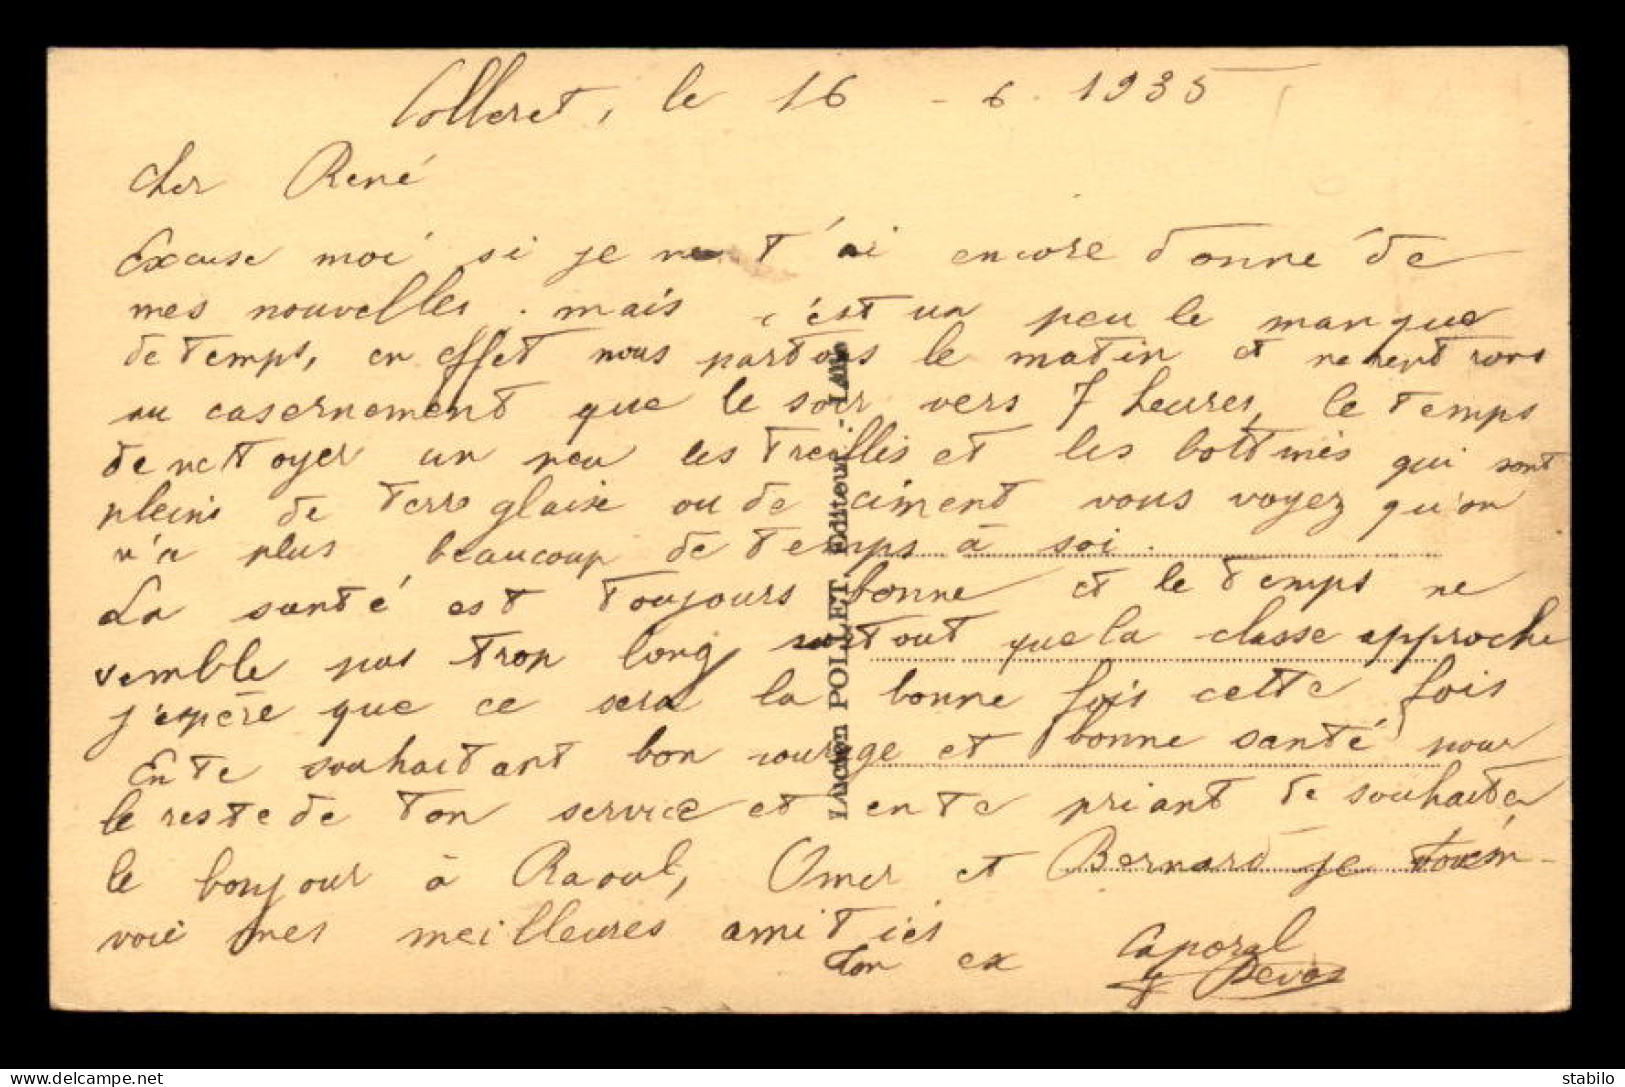 Colleret, le 16 - 6. 1935
Cher René
Excuse moi si je ne t'ai encore donné de
mes nouvelles. mais c'est un peu le manque
de temps, en effet nous partons le matin et ne rentrons
au casernement que le soir vers 7 heures, le temps
de nettoyer un peu les treillis et les bottines qui sont
pleins de terre glaise ou de ciment vous voyez qu'on
n'a plus beaucoup de temps à soi.
La santé est toujours bonne et le temps ne
semble pas trop long surtout que la classe approche
j'espère que ce sera la bonne fois cette fois
En te souhaitant bon courage et bonne santé pour
le reste de ton service et en te priant de souhaiter
le bonjour à Raoul, Omer et Bernard je t'en
voie mes meilleures amitiés
ton ex Caporal
Devos
Lucien POLLET, Editeur - Lille
stabilo
Delcampe.net